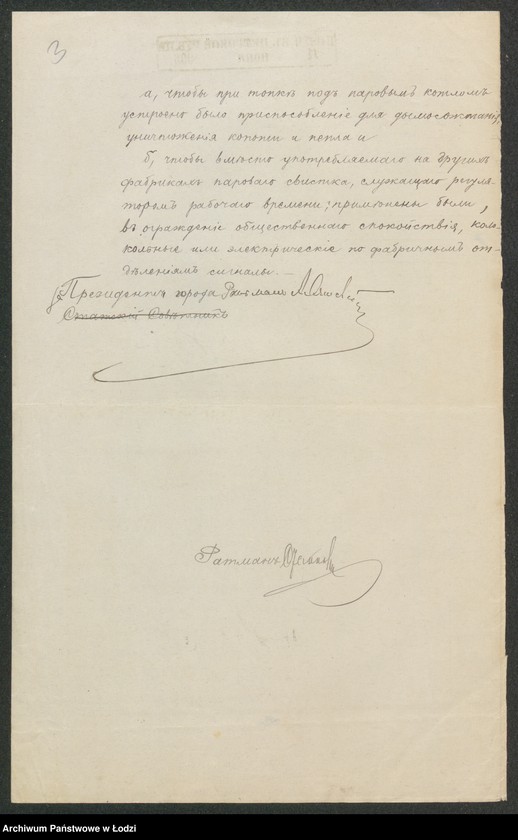 3
а, чтобы при топкѣ подъ паровымъ котломъ
устроено было приспособленіе для дымосожиганія,
уничтоженія копоти и пепла и
б, чтобы вмѣсто употребляемаго на другихъ
фабрикахъ пароваго свистка, служащаго регуля-
торомъ рабочаго времени, примѣнены были,
въ огражденіе общественнаго спокойствія, коло-
кольные или электрическіе по фабричнымъ от-
дѣленіямъ сигналы. —
Президентъ города Ратманъ
Статскій Совѣтникъ
Ратманъ
Archiwum Państwowe w Łodzi